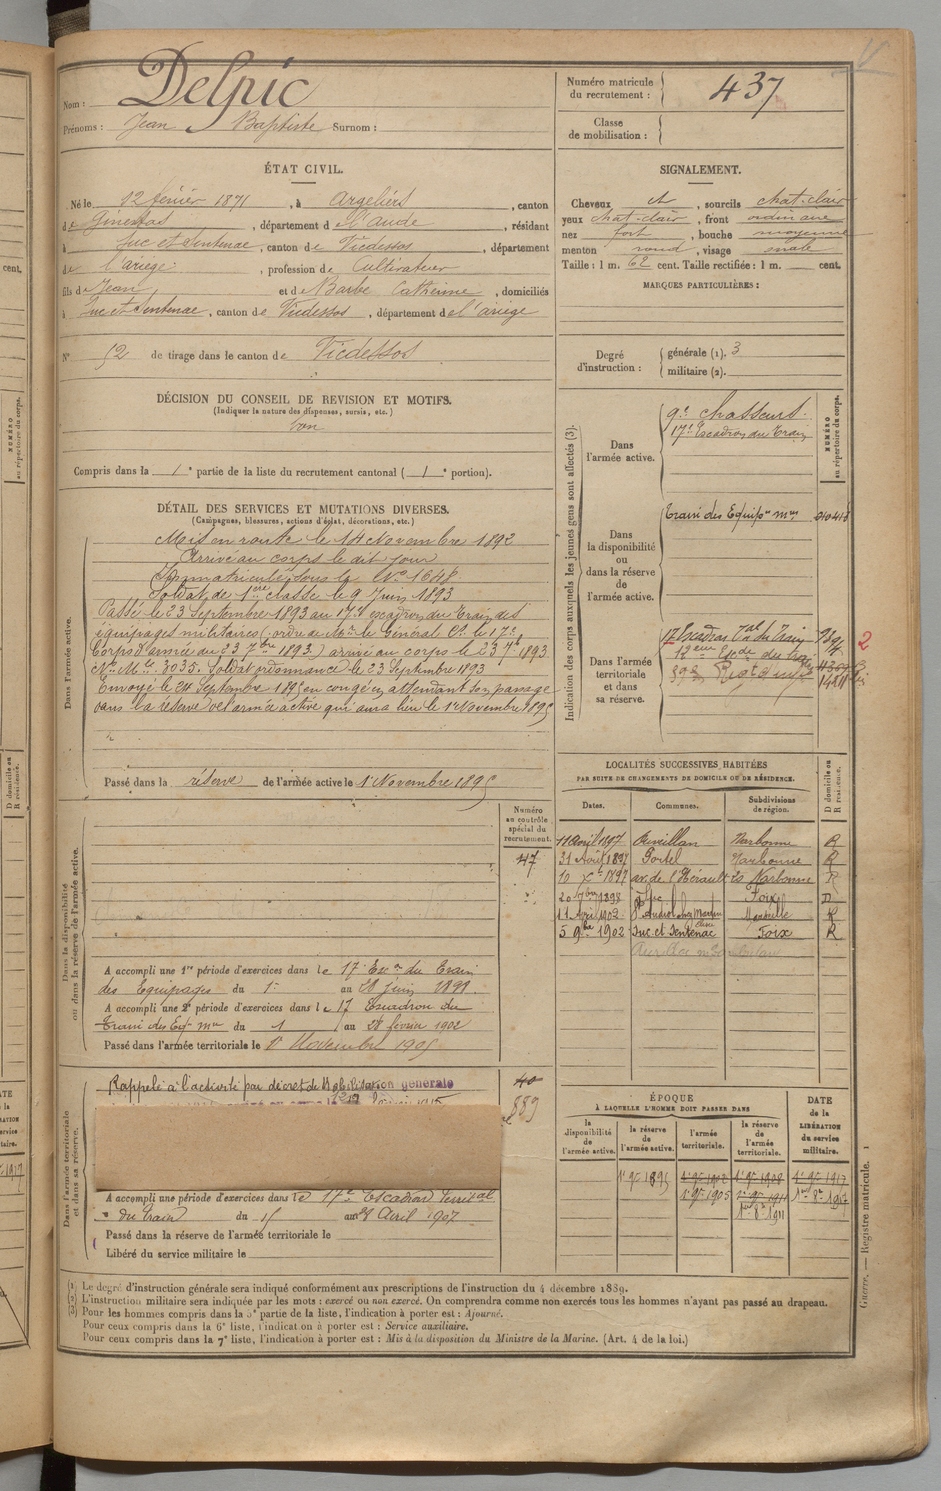 Nom : Delpic
Prénoms : Jean Baptiste Surnom :
Numéro matricule du recrutement : 437
Classe de mobilisation :
ÉTAT CIVIL.
Né le 12 février 1871, à Argeliers, canton
de Ginestas, département de l'aude, résidant
à Suc et Sentenac, canton de Vicdessos, département
de l'ariège, profession de Cultivateur
fils de Jean et de Barbe Catherine, domiciliés
à Suc et Sentenac, canton de Vicdessos, département de l'ariège
N° 52 de tirage dans le canton de Vicdessos
SIGNALEMENT.
Cheveux ch, sourcils chat-clair
yeux chat-clair, front ordinaire
nez fort, bouche moyenne
menton rond, visage ovale
Taille : 1 m. 62 cent. Taille rectifiée : 1 m. cent.
MARQUES PARTICULIÈRES :
Degré d'instruction : générale (1). 3
militaire (2).
DÉCISION DU CONSEIL DE REVISION ET MOTIFS.
(Indiquer la nature des dispenses, sursis, etc.)
bon
Compris dans la 1e partie de la liste du recrutement cantonal ( 1e portion).
DÉTAIL DES SERVICES ET MUTATIONS DIVERSES.
(Campagnes, blessures, actions d'éclat, décorations, etc.)
Dans l'armée active.
Mis en route le 14 Novembre 1892
Arrivé au corps le dit jour
Immatriculé sous le N° 1646
Soldat de 1ère classe le 9 Juin 1893
Passé le 23 Septembre 1893 au 17e escadron du Train des
équipages militaires (ordre de Mr le Général Ct le 17e
Corps d'armée du 23 7bre 1893) arrivé au corps le 23 7e 1893
No Mle 3035. Soldat ordonnance le 23 Septembre 1893
Envoyé le 24 Septembre 1895 en congé en attendant son passage
dans la réserve de l'armée active qui aura lieu le 1er Novembre 1895
Passé dans la réserve de l'armée active le 1er Novembre 1895
Indication des corps auxquels les jeunes gens sont affectés (3).
NUMÉRO au répertoire du corps.
Dans l'armée active.
9e chasseurs.
17e Escadron du Train
Dans la disponibilité ou dans la réserve de l'armée active.
Train des Equip.
Dans l'armée territoriale et dans sa réserve.
17 Escadron du Train
2
LOCALITÉS SUCCESSIVES HABITÉES
PAR SUITE DE CHANGEMENTS DE DOMICILE OU DE RÉSIDENCE.
Dates. Communes. Subdivisions de région. D domicile ou R résidence.
11 Avril 1897 Narbonne R
31 Août 1897 Portel Narbonne R
10 Xe 1897 av. de l'Hérault 20 Narbonne R
20 7bre 1898 Suc Foix D
11 Avri 1902 Marseille R
5 9bre 1902 Suc et Sentenac Foix R
Dans la disponibilité ou dans la réserve de l'armée active.
Numéro au contrôle spécial du recrutement.
47
A accompli une 1re période d'exercices dans le 17 Escn du Train
des Equipages du 1er au 28 juin 1899.
A accompli une 2e période d'exercices dans le 17 Escadron du
Train des Eq. mre du 1 au 28 février 1902
Passé dans l'armée territoriale le 1er Novembre 1905
Dans l'armée territoriale et dans sa réserve.
Rappelé à l'activité par décret de Mobilisation générale
40
889
A accompli une période d'exercices dans le 17e Escadron Territal
du Train du 15 au 28 Avril 1907
Passé dans la réserve de l'armée territoriale le
Libéré du service militaire le
ÉPOQUE
À LAQUELLE L'HOMME DOIT PASSER DANS
DATE de la LIBÉRATION du service militaire.
la disponibilité de l'armée active.
la réserve de l'armée active.
l'armée territoriale.
la réserve de l'armée territoriale.
1er 9e 1895 1er 9e 1902 1er 9e 1908 1er 9e 1917
1er 9e 1905 1er 9e 1911 1er 8e 1917
1er 8e 1911
(1) Le degré d'instruction générale sera indiqué conformément aux prescriptions de l'instruction du 4 décembre 1889.
(2) L'instruction militaire sera indiquée par les mots : exercé ou non exercé. On comprendra comme non exercés tous les hommes n'ayant pas passé au drapeau.
(3) Pour les hommes compris dans la 5e partie de la liste, l'indication à porter est : Ajourné.
Pour ceux compris dans la 6e liste, l'indication à porter est : Service auxiliaire.
Pour ceux compris dans la 7e liste, l'indication à porter est : Mis à la disposition du Ministre de la Marine. (Art. 4 de la loi.)
Guerre. — Registre matricule. 1